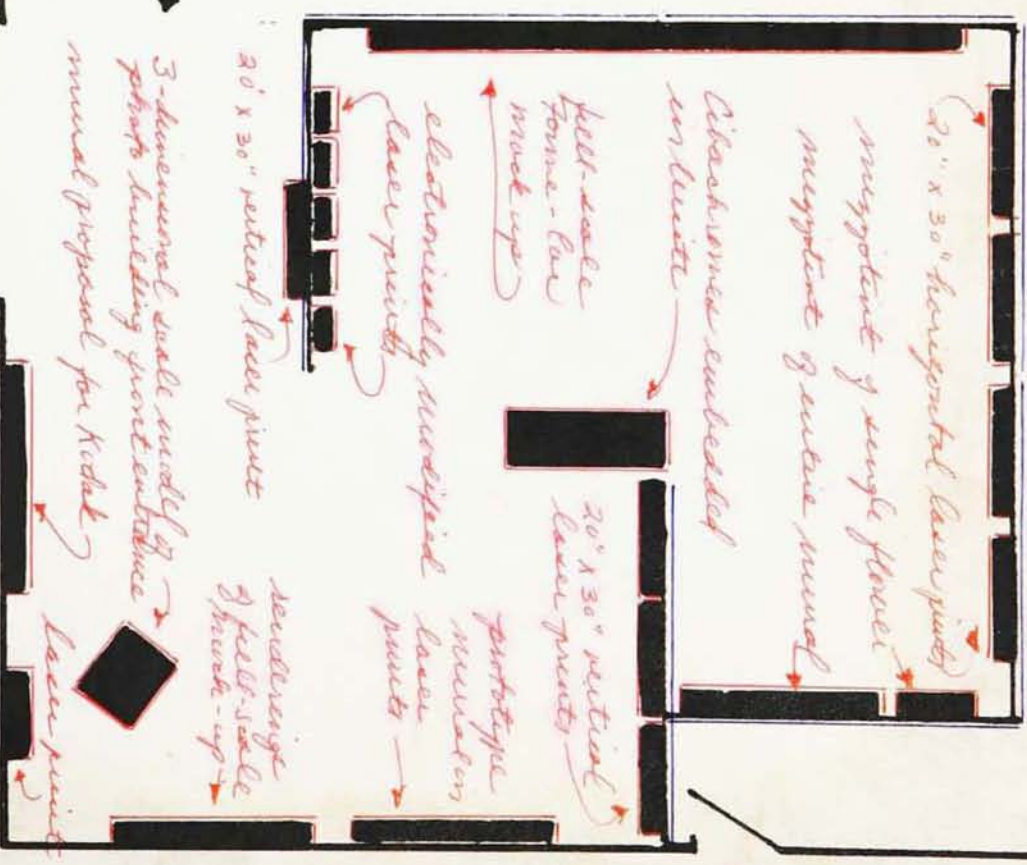 20" x 30" horizontal laser prints
mezzotint of single flower
mezzotint of entire mural
Cibachromes embedded
in lucite
full-scale
mock up
electronically modified
laser prints
20" x 30" vertical
laser prints
prototype
mural in
laser
prints
renderings
of full-scale
mock-up
20' x 30" vertical laser print
3-dimensional scale model of
photo building front entrance
mural proposal for Kodak
laser prints